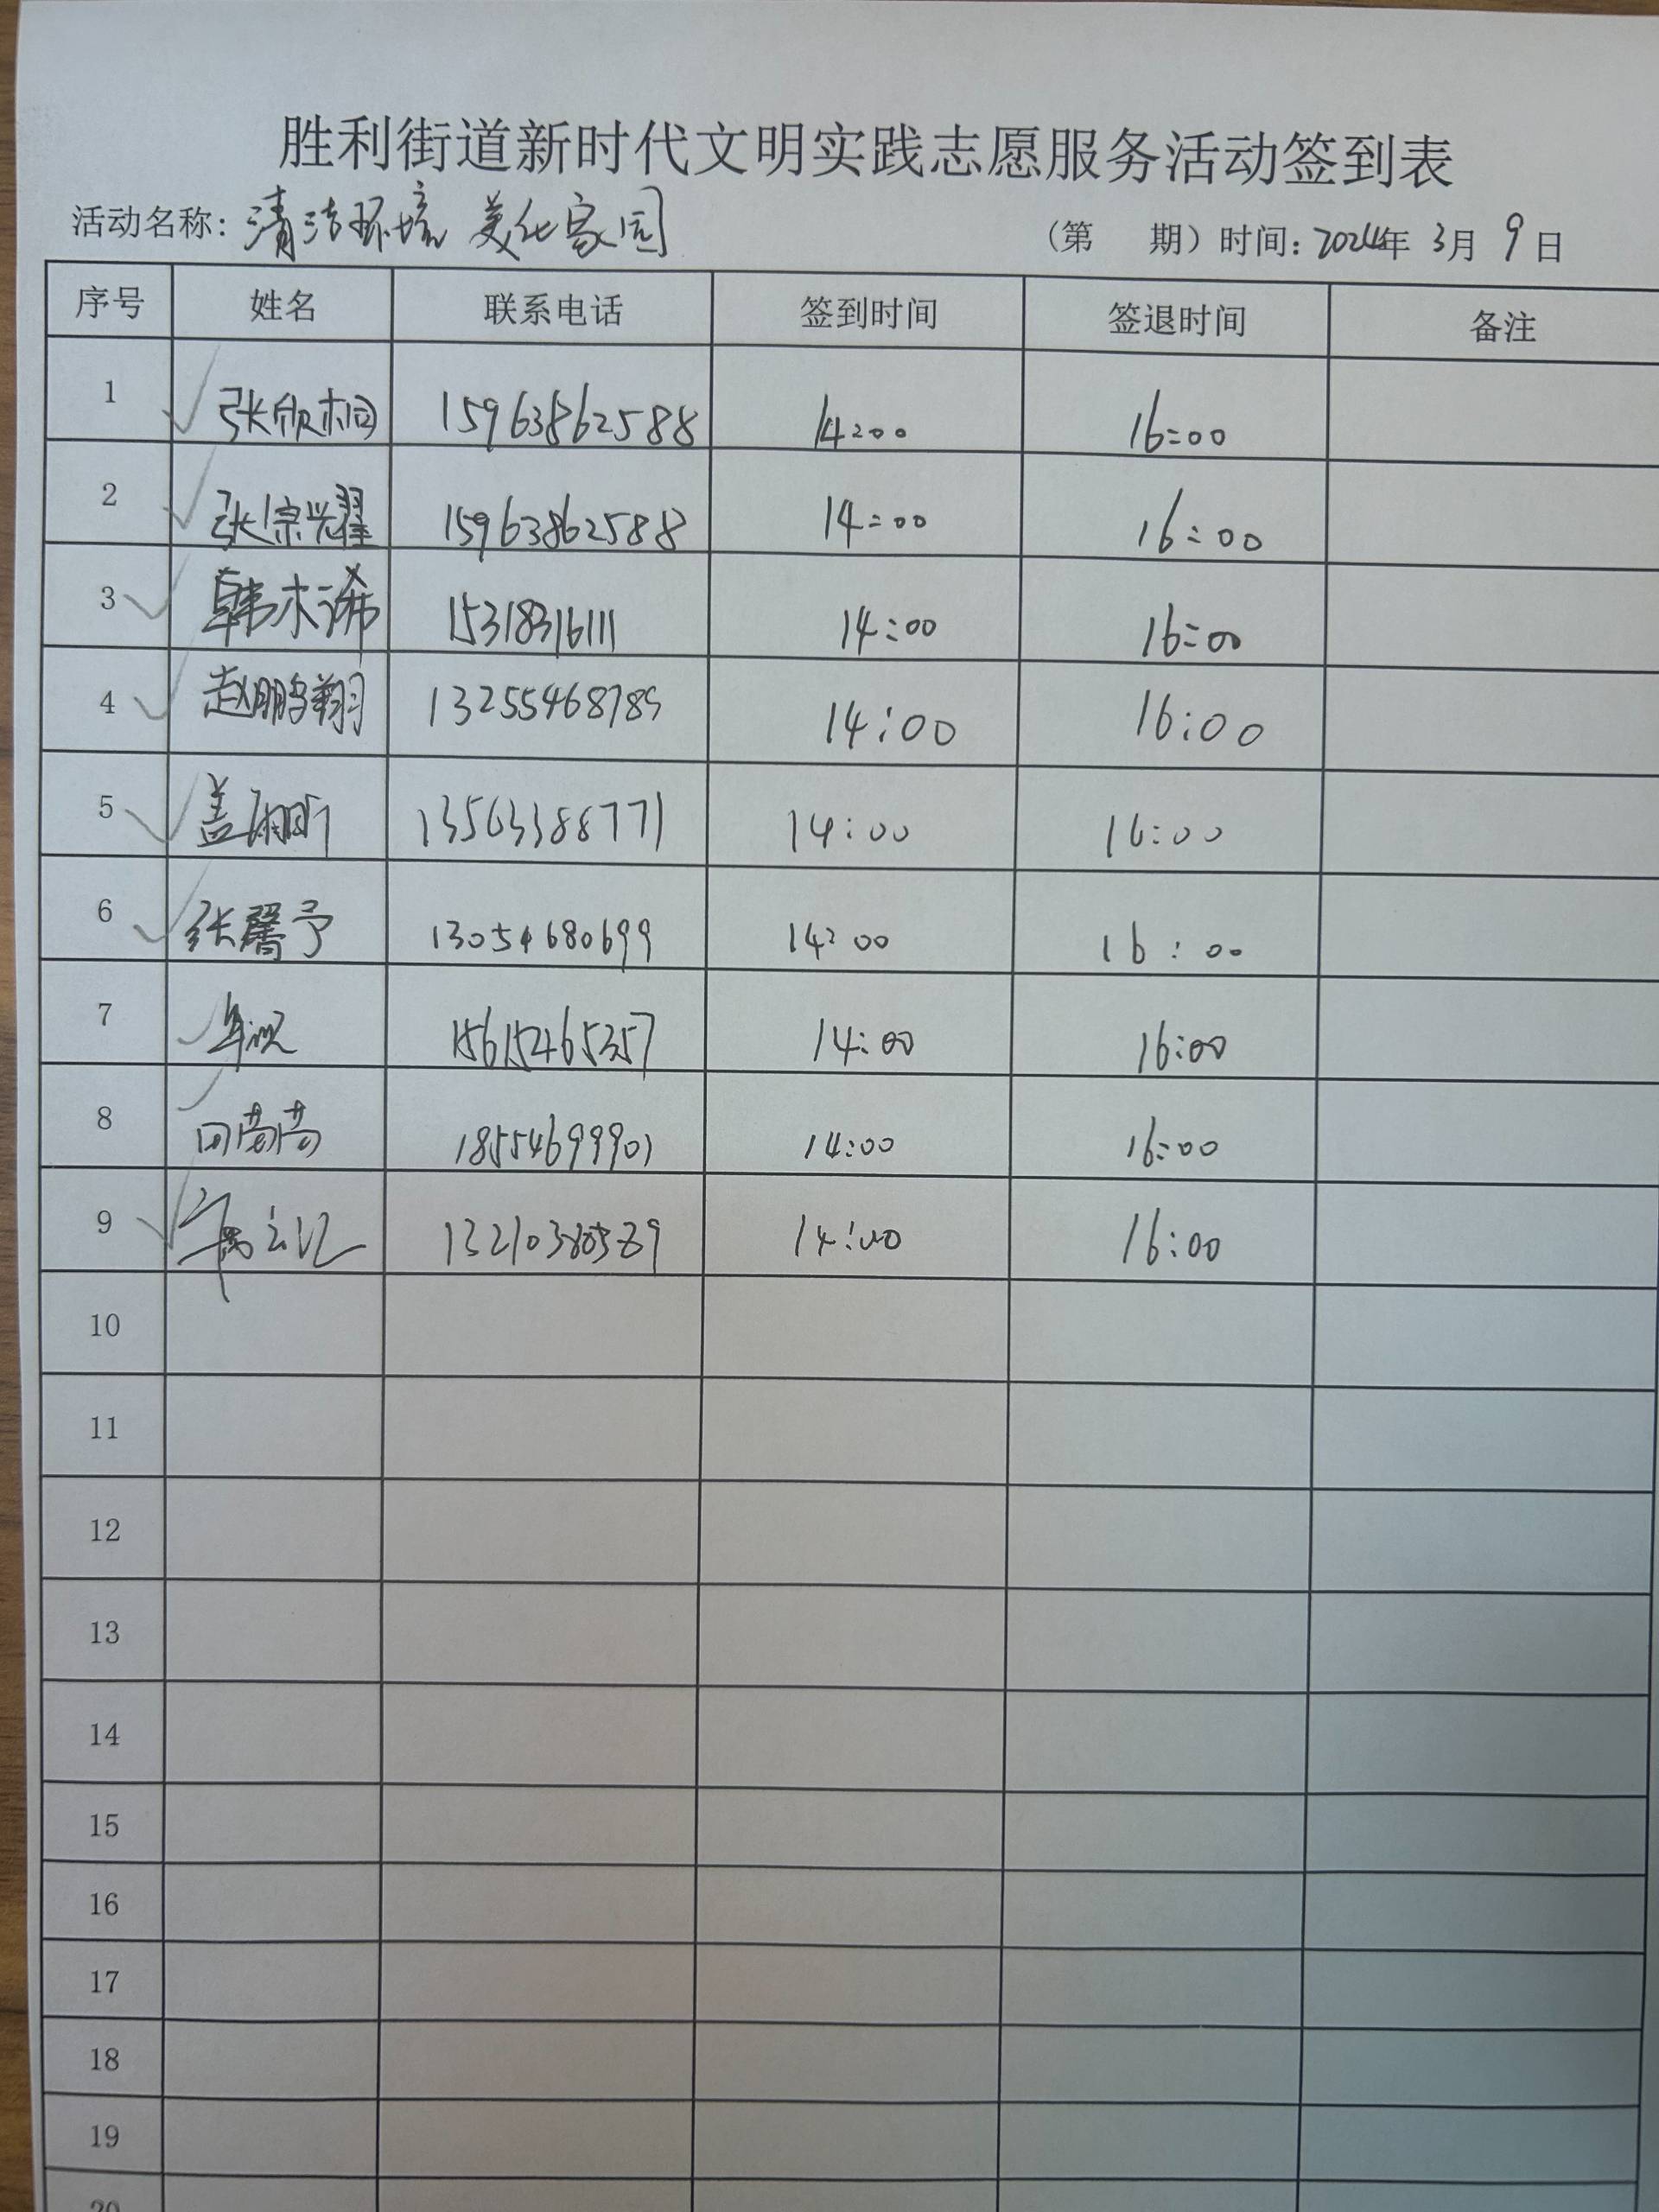 胜利街道新时代文明实践志愿服务活动签到表
活动名称：清洁环境 美化家园 （第 期）时间：2024年 3月 9日
序号 姓名 联系电话 签到时间 签退时间 备注
1 张欣桐 15963862588 14:00 16:00
2 张倧兴耀 15963862588 14:00 16:00
3 韩木浠 15318316111 14:00 16:00
4 赵鹏翔 13255468789 14:00 16:00
5 盖 13563388771 14:00 16:00
6 张馨予 13054680699 14:00 16:00
7 15615465357 14:00 16:00
8 田蒿蒿 18554699901 14:00 16:00
9 13210380589 14:00 16:00
10
11
12
13
14
15
16
17
18
19
20